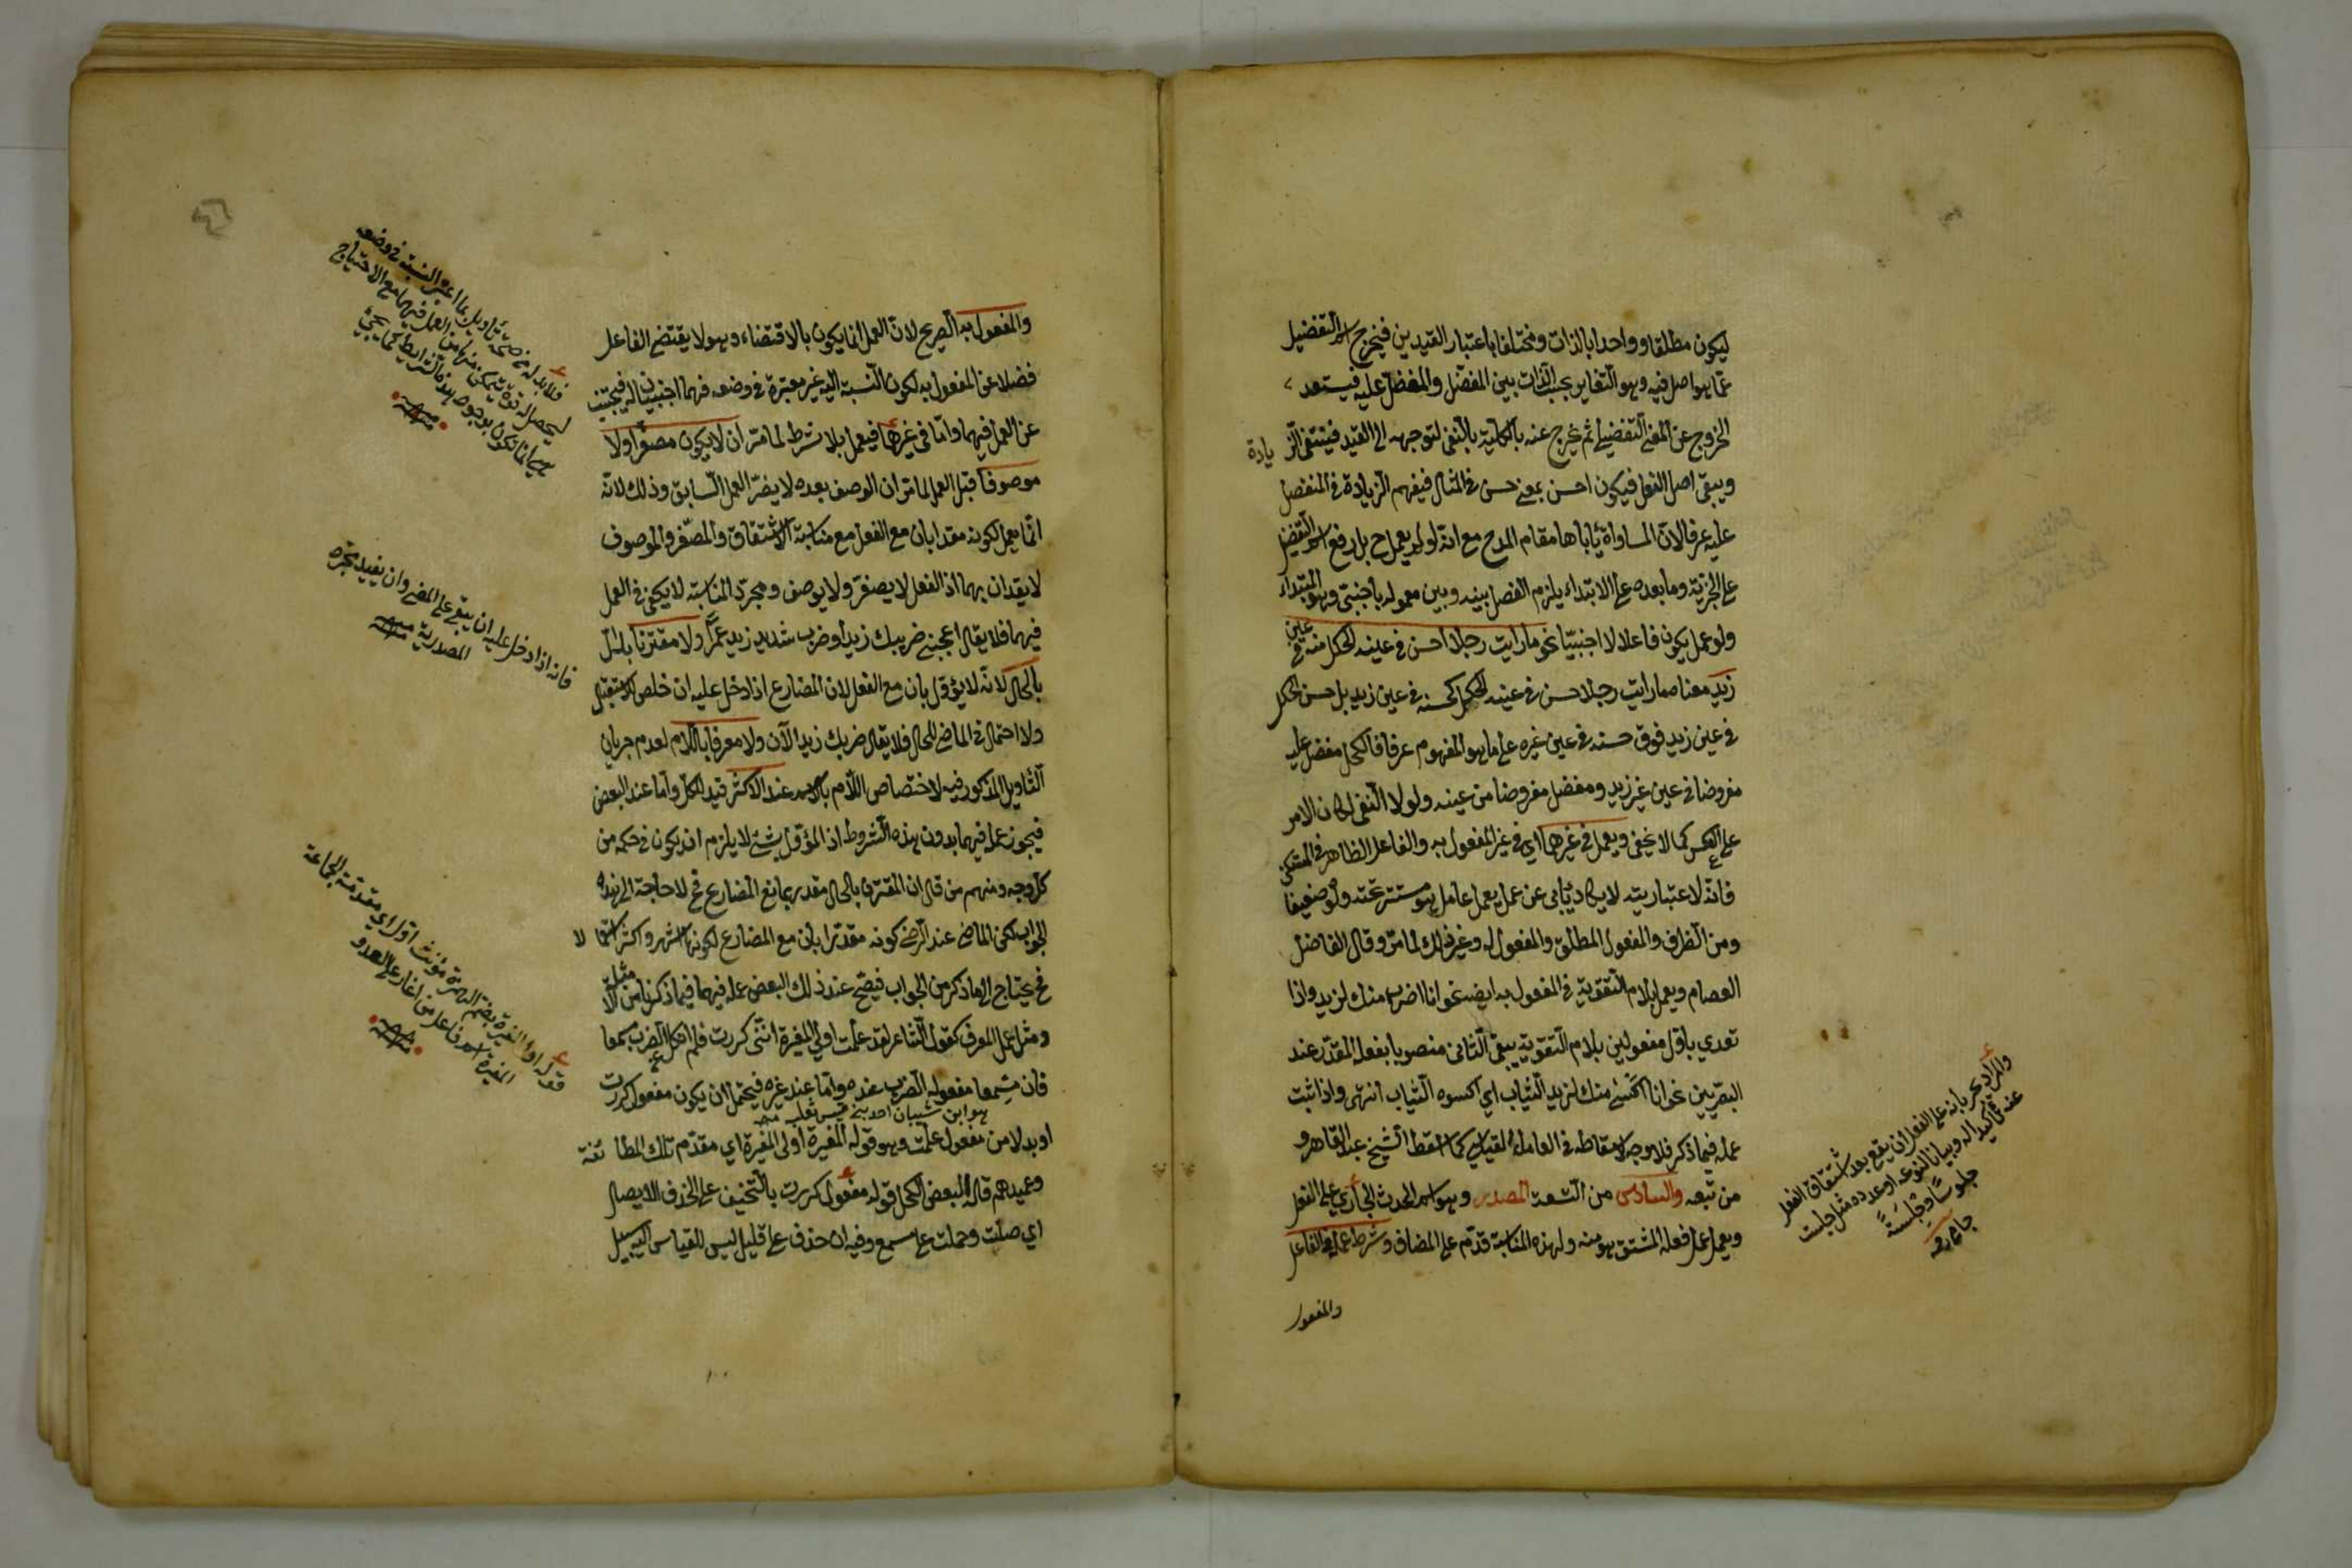 ليكون مطلقا وواحدا بالذات ومختلفا باعتبار القيدين فيخرج اسم التفضيل
عمّا هو اصل فيه وهو التّغاير بحسب الذّات بين المفضّل والمفضّل عليه فيستعد
الخروج عن المعنى التفضيلى ثم يخرج عنه بالكليّة بالنّفى لتوجهه الى القيد فينتفى الزّيادة
ويبقى اصل الفعل فيكون احسن بمعنى حسن فى المثال فيفهم الزّيادة فى المفضل
عليه عرفا لانّ المساواة يأباها مقام المدح مع انه لو لم يعمل ح بل رفع اسم التفضيل
على الخبريّة وما بعده على الابتداء يلزم الفصل بينه وبين معموله باجنبىّ وهو المبتداء
ولو عمل يكون فاعلا لا اجنبيّا نحو ما رايت رجلا احسن فى عينه الكحل منه فى عين
زيد معناه ما رايت رجلا حسن فى عينه الكحل كحسنه فى عين زيد بل حسن الكحل
فى عين زيد فوق حسنه فى عين غيره على ما هو المفهوم عرفا فالكحل مفضل عليه
مفروضا فى عين غير زيد ومفضل مفروضا من عينه ولولا النّفى لكان الامر
على العكس كما لا يخفى ويعمل فى غيرها اى فى غير المفعول به والفاعل الظاهر فى المستكن
فانّه لاعتباريته لا يكاد يأبى عن عمل يعمل عامل هو مستتر تحته ولو ضعيفا
ومن الظرف والمفعول المطلق والمفعول له وغير ذلك لما مرّ وقال الفاضل
العصام ويعمل بلام التقوية فى المفعول به ايضا نحو انا اضرب منك لزيد واذا
تعدى باوّل مفعولين بلام التقوية يبقى الثانى منصوبا بفعله المقدّر عند
البصريين نحو انا اكسى منك لزيد الثياب اى اكسوه الثياب انتهى واذا ثبت
عمله فيما ذكر فلا وجه لاسقاطه فى العامل القياسى كما اسقط الشيخ عبد القاهر و
من تبعه والسادس من التسعة المصدر وهو اسم الحدث الجارى على الفعل
ويعمل عمل فعله المشتق هو منه ولهذه المناسبة قدّم على المضاف وشرط عمله فى الفاعل
والمفعول
والمراد بجريانه على الفعل ان يقع بعد اشتقاق الفعل
عنه تأكيدا له وبيانا لنوعه او عدده مثل جلست
جلوسًا وجِلسَةً
جامى رحمه
والمفعول به الصريح لانّ العمل انما يكون بالاقتضاء وهو لا يقتضى الفاعل
فضلا عن المفعول به لكون النّسبة اليه غير معتبرة فى وضعه فهما اجنبيان له فيجتنب
عن العمل فيهما وامّا فى غيرها فيعمل بلا شرط لما مرّ ان لا يكون مصغّرا ولا
موصوفا قبل العمل لما مرّ ان الوصف بعده لا يضرّ العمل السّابق وذلك لانّه
انّما يعمل لكونه مقدرا بان مع الفعل مع مناسبة الاشتقاق والمصغّر والموصوف
لا يقدران بهما اذ الفعل لا يصغّر ولا يوصف ومجرّد المناسبة لا يكفى فى العمل
فيهما فلا يقال اعجبنى ضريبك زيدا وضرب شديد زيد عمرًا ولا مقترنا
بالحال لانّه لا يؤوّل بان مع الفعل لان المضارع اذا دخل عليه ان خلص للاستقبال
ولا احتمال فى الماضى للحال فلا يقال ضربك زيدا الآن ولا معرفا باللّام لعدم جريان
التّاويل المذكور فيه لاختصاص اللّام بالاسم عند الاكثر قيد للكلّ وامّا عند البعض
فيجوز عمله فيهما بدون هذه الشروط اذ المؤوّل بشئ لا يلزم ان يكون فى حكمه من
كلّ وجه ومنهم من قال ان المقترن بالحال مقدر بما مع المضارع فح لا حاجة الى هذا
الجواب لكن الماضى عند الرضى كونه مقدّرا بان مع المضارع لكونها اشهر واكثر استعمالا
فح يحتاج الى ما ذكر من الجواب فيصح عند ذلك البعض عمله فيهما فيما ذكرنا من الامثلة
ومثل عمل المعرف كقول الشّاعر لقد علمت اولى المغيرة انّنى كررت فلم انكل عن الضرب مسمعا
فان مسمعا مفعوله الضرب عنده وامّا عند غيره فيحتمل ان يكون مفعول كررت
هو ابن شيبان احد بنى قيس ثعلب
او بدلا من مفعول علمت وهو قوله المغيرة اولى المغيرة اى مقدّم تلك الطائفة
وعميدهم قال البعض الكحل قوله مفعول كررت بالتّخفيف على الحذف الايصال
اى صلت وحملت على مسمع وفيه ان حذف على قليل ليس للقياس اليه سبيل
فلا بد له من صحّة تاويل بما اعتبر النسبة فى وضعه
ليحصل له قوة يتمكن منها من العمل فيهما مع الاحتياج
انما تكون بوجود هذه الشرايط كما يجئ
منه
فانه اذا دخل عليه ان يبقى على المضى وان يفيد بمجرّد
المصدرية منه
قوله اولى المغيرة بضم الهمزة مؤنث اوّل اى مقدمة الجماعة
المغيرة اسم فاعل من اغار على العدو
منه